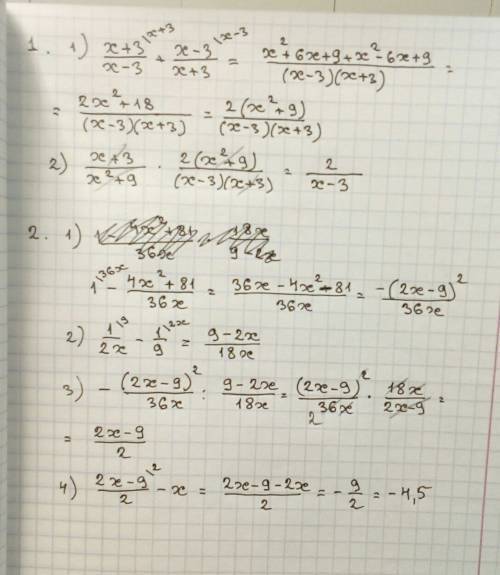 1. 1) (x+3)/(x-3) \x+3 + (x-3)/(x+3) \x-3 = (x²+6x+9+x²-6x+9)/((x-3)(x+3)) =
= (2x²+18)/((x-3)(x+3)) = (2(x²+9))/((x-3)(x+3))
2) (x+3)/(x²+9) · (2(x²+9))/((x-3)(x+3)) = 2/(x-3)
2. 1)
1\36x - (4x²+81)/(36x) = (36x-4x²-81)/(36x) = (-(2x-9)²)/(36x)
2) 1/(2x) \9 - 1/9 \2x = (9-2x)/(18x)
3) -(2x-9)²/(36x) : (9-2x)/(18x) = (2x-9)²/(2 36x) · (18x)/(2x-9) =
= (2x-9)/2
4) (2x-9)/2 \2 - x = (2x-9-2x)/2 = -9/2 = -4,5